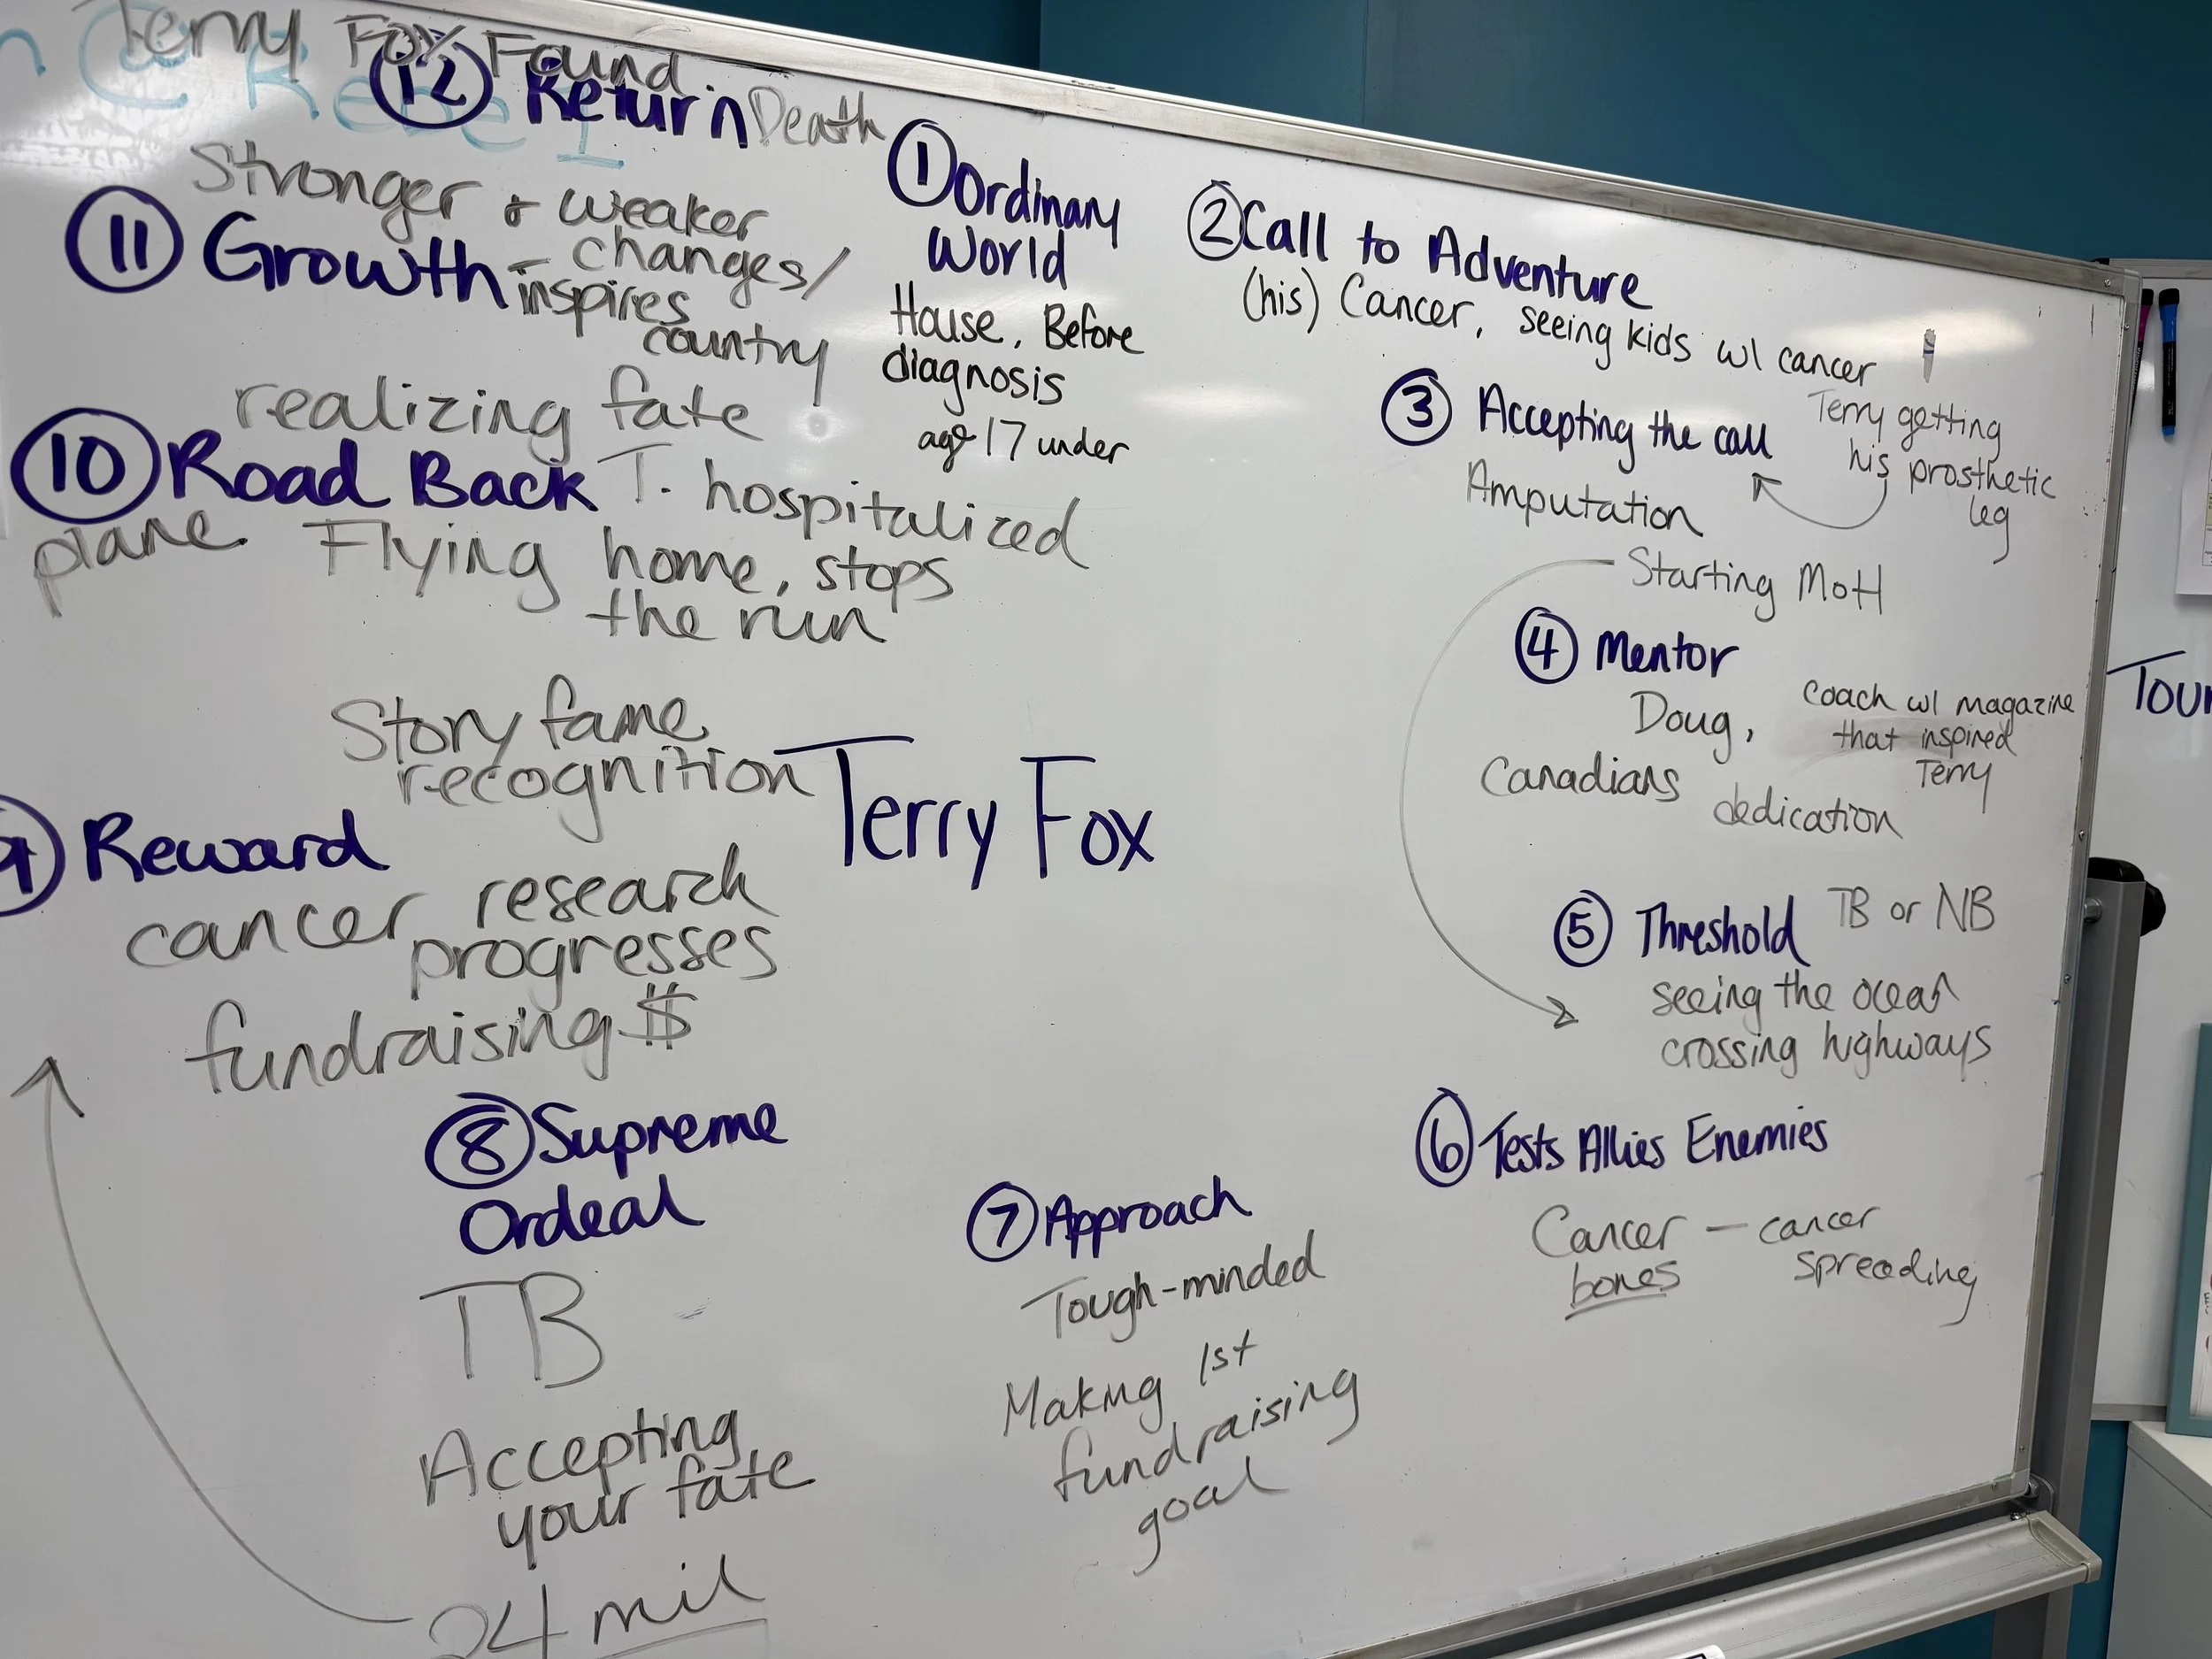 Terry Fox Found.
⑫ Return Death
① Ordinary
World
House, Before
diagnosis
age 17 under
② Call to Adventure
(his) Cancer, seeing kids w/ cancer
③ Accepting the call
Terry getting
his prosthetic
leg
Amputation
Starting MoH
④ Mentor
Doug,
coach w/ magazine
that inspired
Terry
Canadians
dedication
⑤ Threshold TB or NB
seeing the ocean
crossing highways
⑥ Tests Allies Enemies
Cancer — cancer
bones spreading
⑦ Approach
Tough-minded
Making 1st
fundraising
goal
⑧ Supreme
Ordeal
TB
Accepting
your fate
24 mil
9 Reward
Story fame
recognition
cancer research
progresses
fundraising $
⑩ Road Back
realizing fate
T. hospitalized
plane Flying home, stops
the run
⑪ Growth
Stronger + weaker
– changes/
inspires
country
Terry Fox
Tour